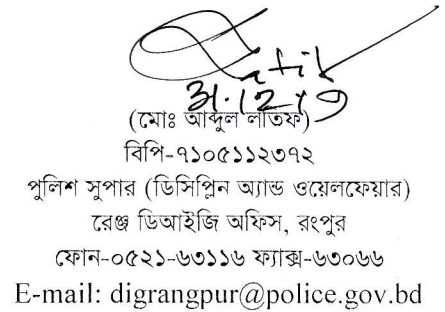 Latif
31.12.19
(মোঃ আব্দুল লতিফ)
বিপি-৭১০৫১১২৩৭২
পুলিশ সুপার (ডিসিপ্লিন অ্যান্ড ওয়েলফেয়ার)
রেঞ্জ ডিআইজি অফিস, রংপুর
ফোন-০৫২১-৬৩১১৬ ফ্যাক্স-৬৩০৬৬
E-mail: digrangpur@police.gov.bd